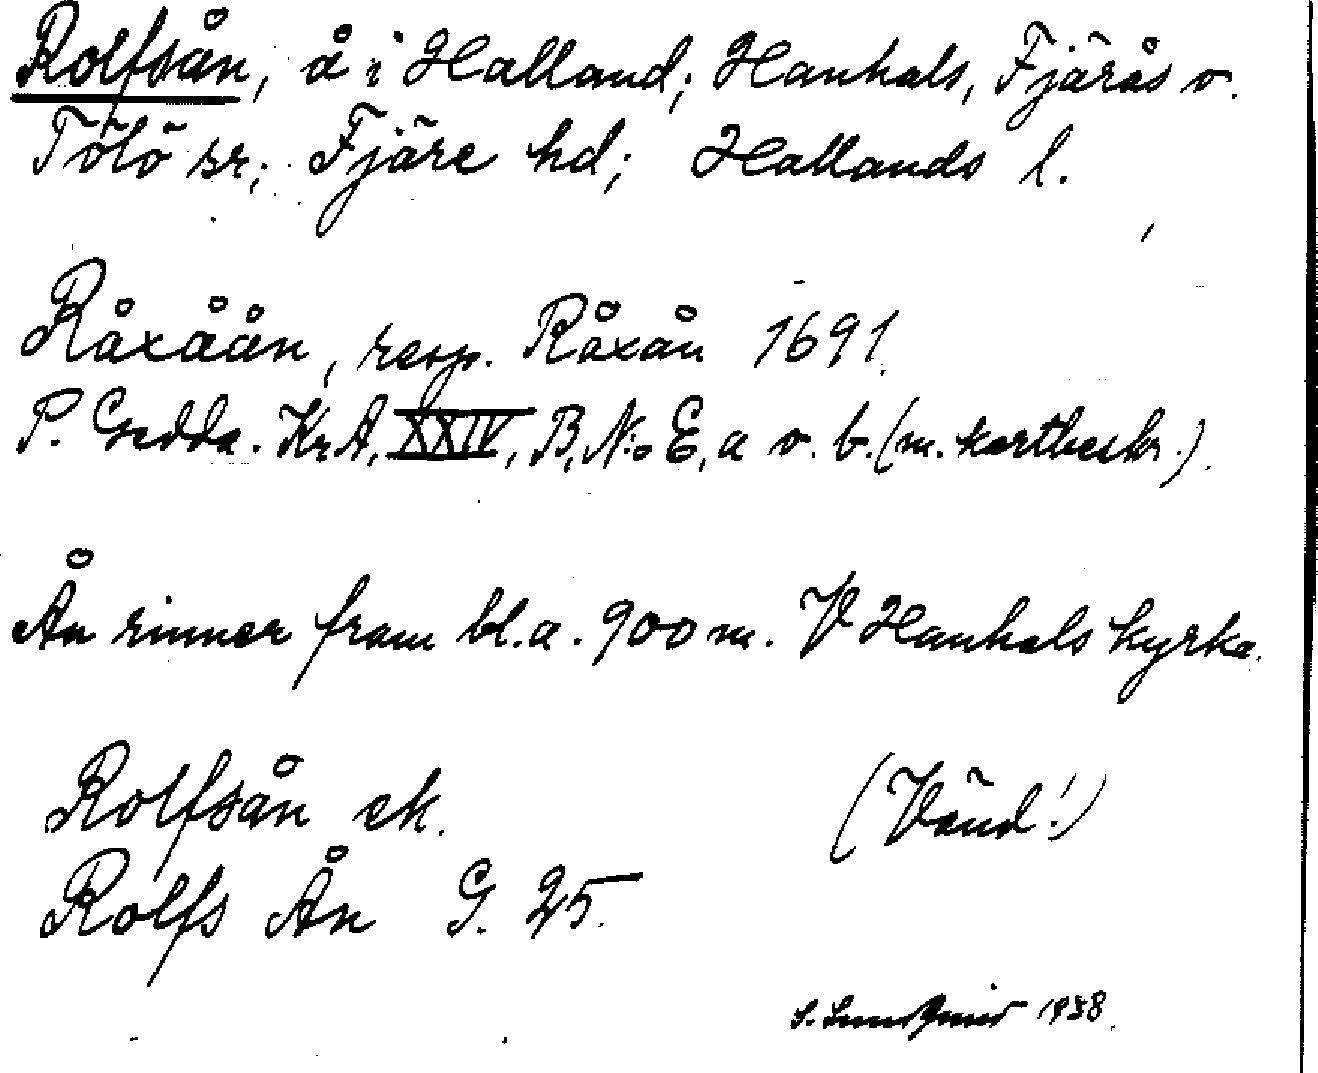 Rolfsån, å i Halland; Hanhals, Fjärås o.
Tölö sr; Fjäre hd; Hallands l.
Råxåån, resp. Råxån 1691.
P. Gedda. KrA, XXIV, B, N:o E, a o. b. (m. kartbeskr.).
Ån rinner fram bl.a. 900 m. V Hanhals kyrka.
Rolfsån ek.
(Vänd!)
Rolfs Ån G. 25.
S. 1938.